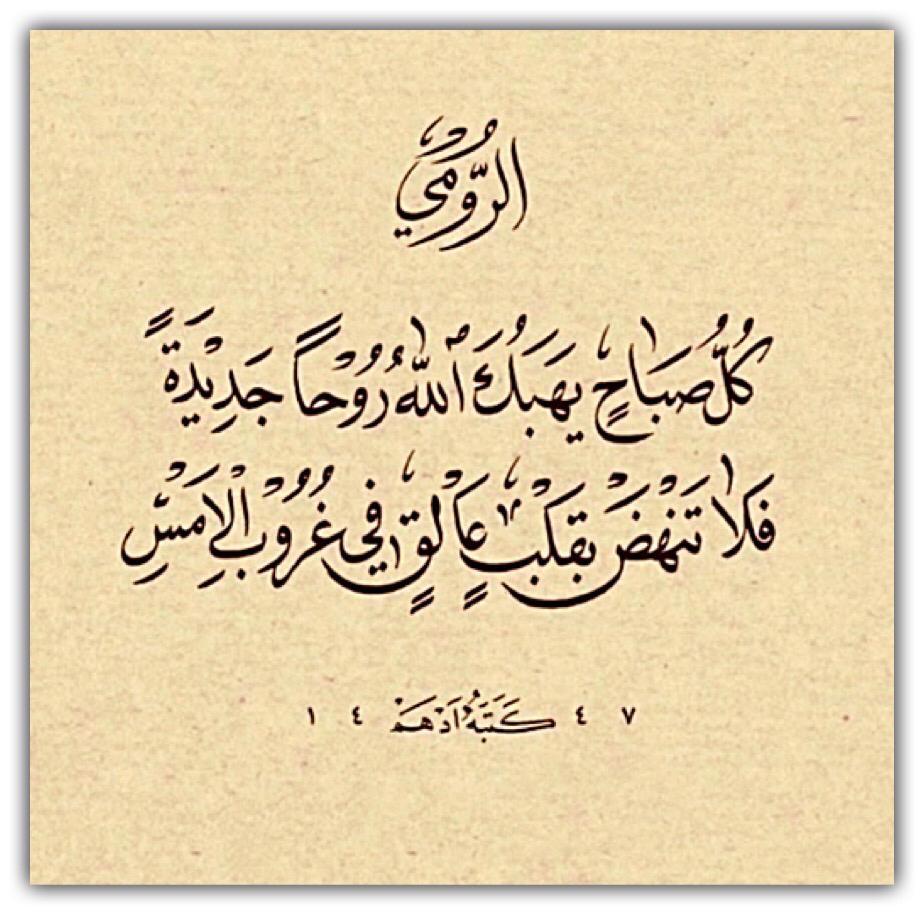 الرُّومِيُّ
كُلُّ صَبَاحٍ يَهَبُكَ ٱللهُ رُوْحاً جَدِيْدَةً
فَلَا تَنْهَضْ بِقَلْبٍ عَالِقٍ فِي غُرُوْبِ الْاَمْسِ
١ ٤ كَتَبَهُ اَدْهَمْ ٤ ٧